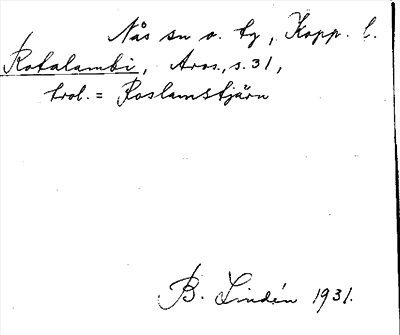 Nås sn o. tg, Kopp. l.
Rotalambi, Aros., s. 31,
trol. = Roslamstjärn
B. Lindén 1931.